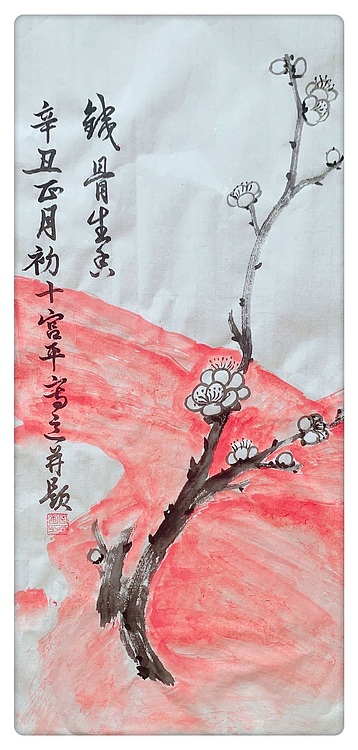 铁骨生香
辛丑正月初十宫平写意并题